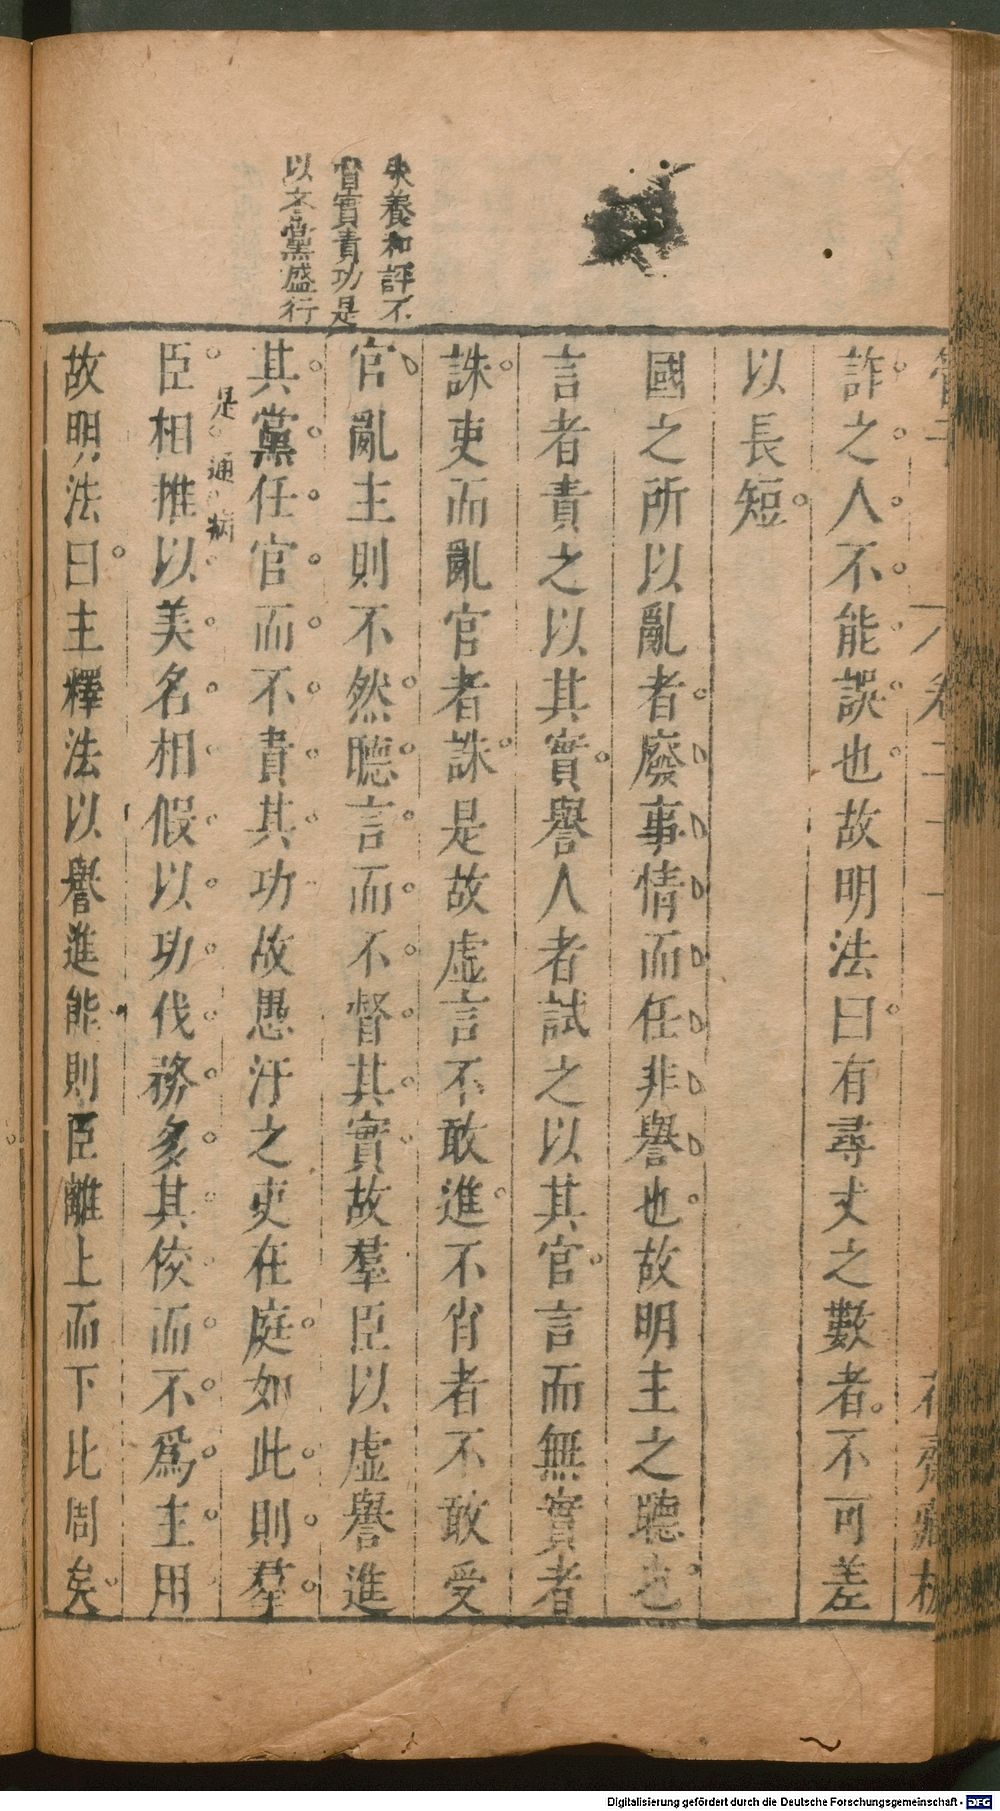 詐之人不能誤也故明法曰有尋丈之數者不可差
以長短
國之所以亂者廢事情而任非譽也故明主之聽也
言者責之以其實譽人者試之以其官言而無實者
誅吏而亂官者誅是故虛言不敢進不肖者不敢受
官亂主則不然聽言而不督其實故羣臣以虛譽進
其黨任官而不責其功故愚汙之吏在庭如此則羣
臣相推以美名相假以功伐務多其佼而不爲主用
故明法曰主釋法以譽進能則臣離上而下比周矣
朱養和評不
官實責功是
以文黨盛行
是通病
Digitalisierung gefördert durch die Deutsche Forschungsgemeinschaft - DFG